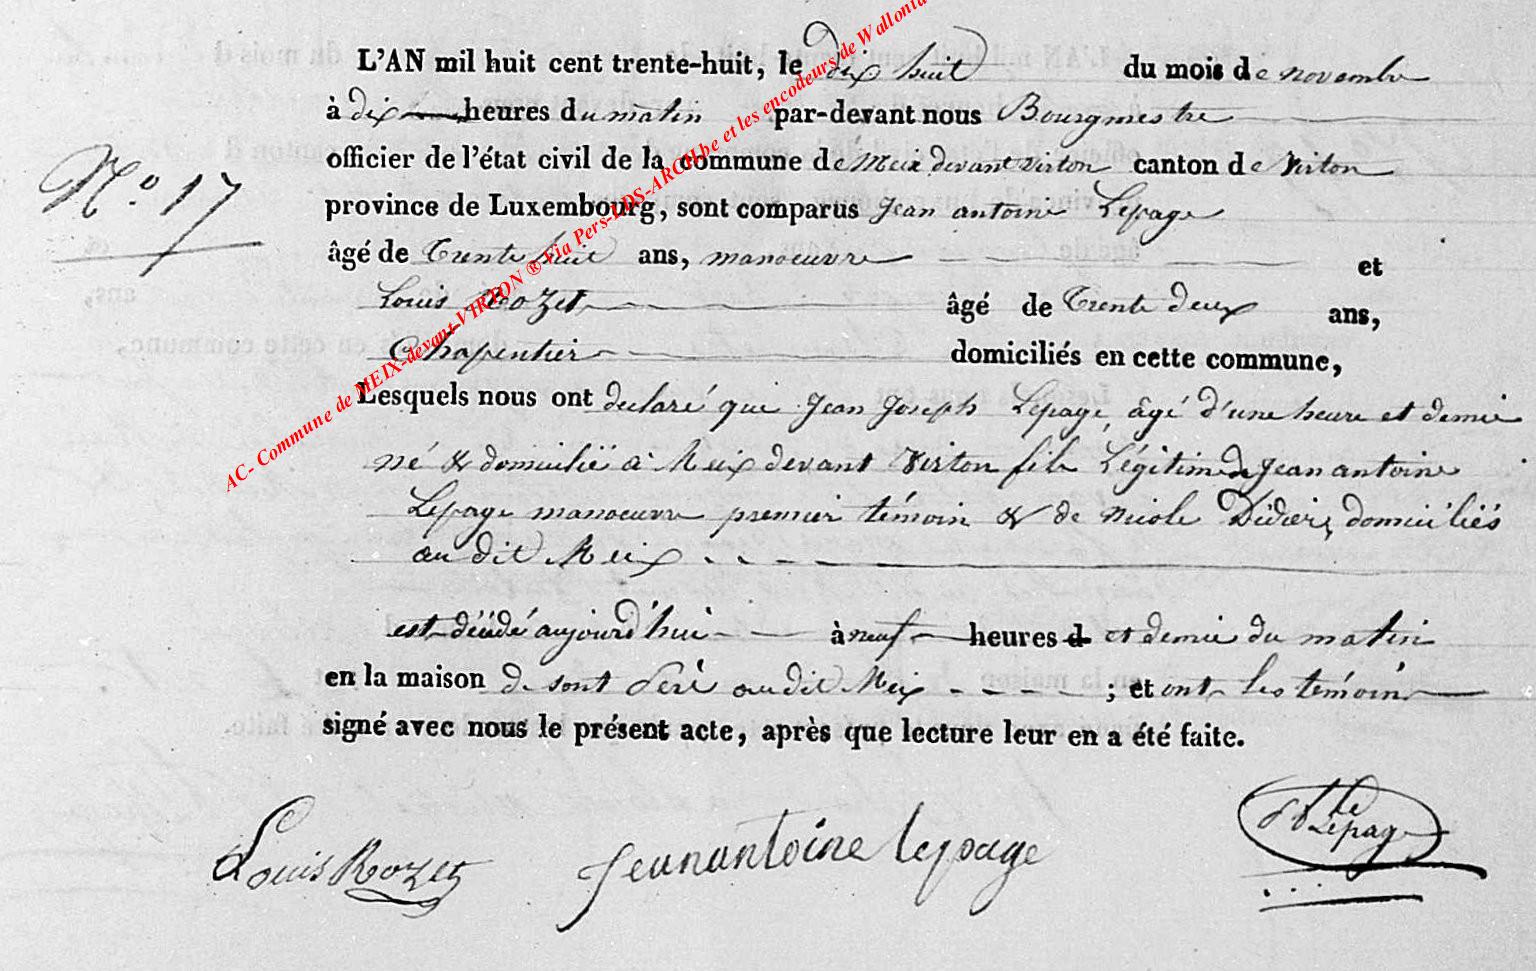 L'AN mil huit cent trente-huit, le dix huit du mois de novembre
à dix heures du matin par-devant nous Bourgmestre
officier de l'état civil de la commune de Meix devant virton canton de virton
N.o 17
province de Luxembourg, sont comparus Jean antoine Lepage
âgé de Trente huit ans, manoeuvre et
Louis Rozet âgé de Trente deux ans,
Chapentier domiciliés en cette commune,
Lesquels nous ont declaré que Jean Joseph Lepage, âgé d'une heure et demie
né & domicilié à Meix devant Virton fils Légitime de Jean antoine
Lepage manoeuvre premier témoin & de Nicole Didier, domiciliés
au dit Meix
est décédé aujourd'hui à neuf heures d et demie du matin
en la maison de sont Peré au dit Meix ; et ont les témoins
signé avec nous le présent acte, après que lecture leur en a été faite.
Louis Rozet Jean antoine lepage Lepage
AC- Commune de MEIX-devant-VIRTON ® Via Pers-LDS-ARCH.be et les encodeurs de Wallonia